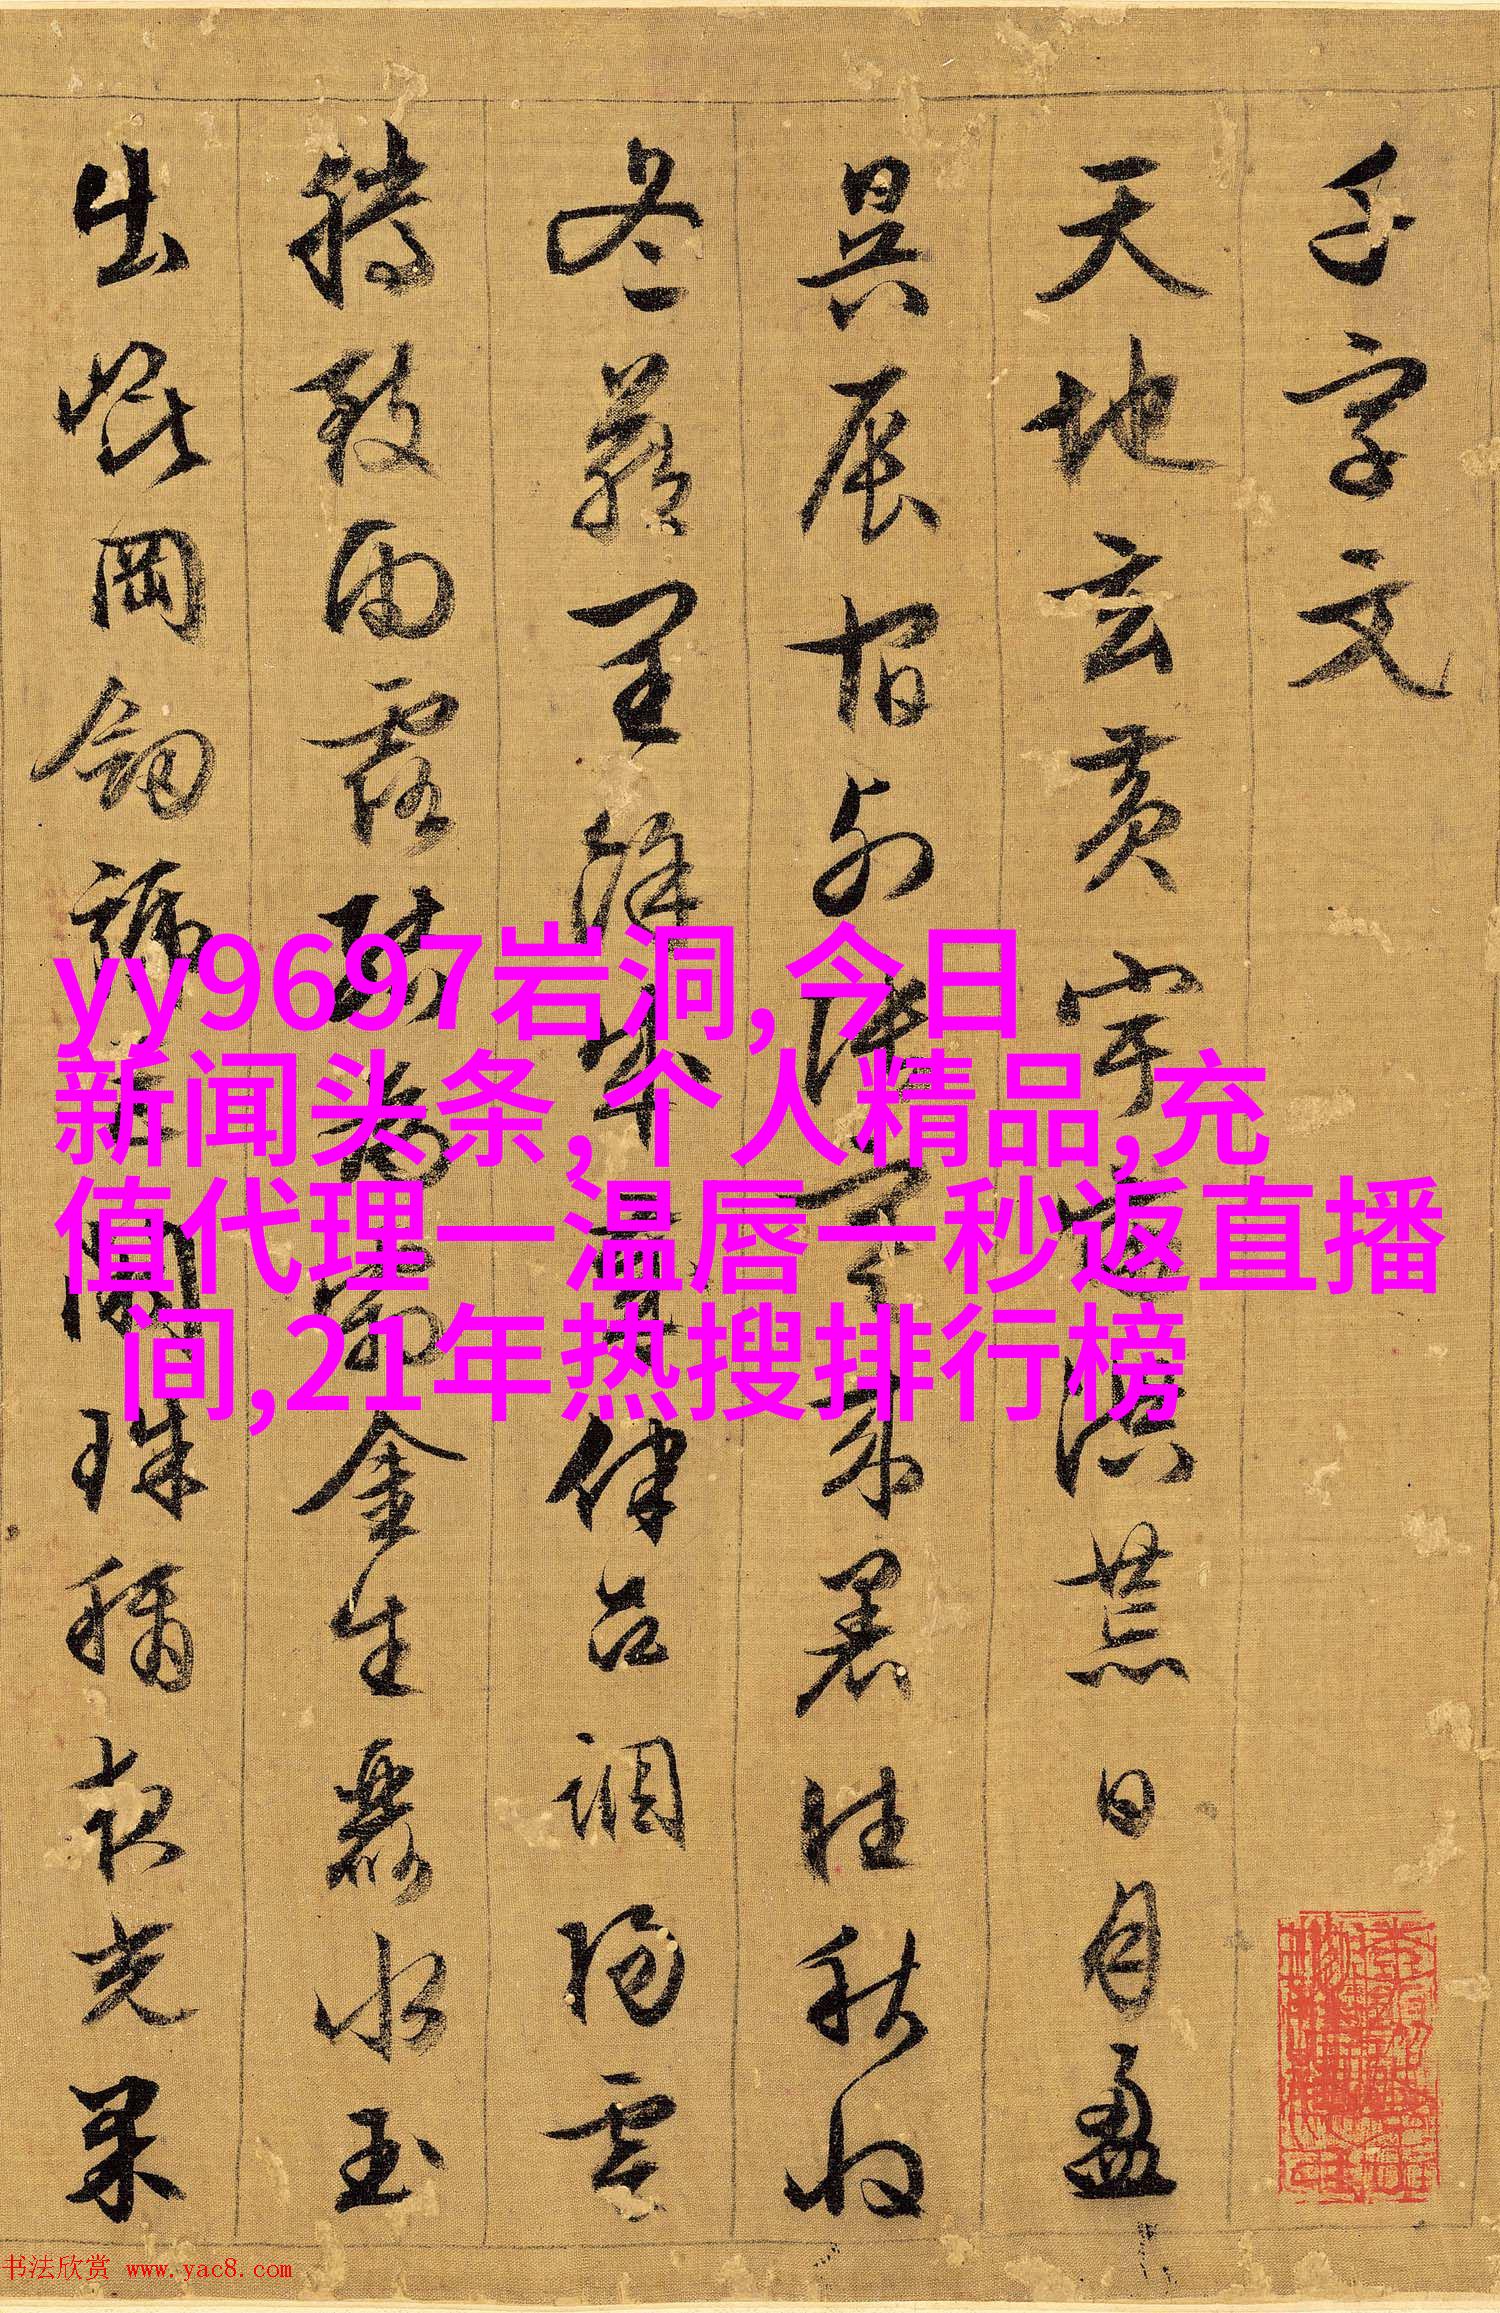 千字文
天地玄黄宇宙洪荒日月盈
昃辰宿列張寒來暑往秋收
冬藏閏餘成歲律呂調陽雲
騰致雨露結為霜金生麗水玉
出崑岡劍號巨闕珠稱夜光果
yy9697岩洞,今日
新闻头条,个人精品,充
值代理一温唇一秒返直播
间,21年热搜排行榜
书法欣赏 www.yac8.com